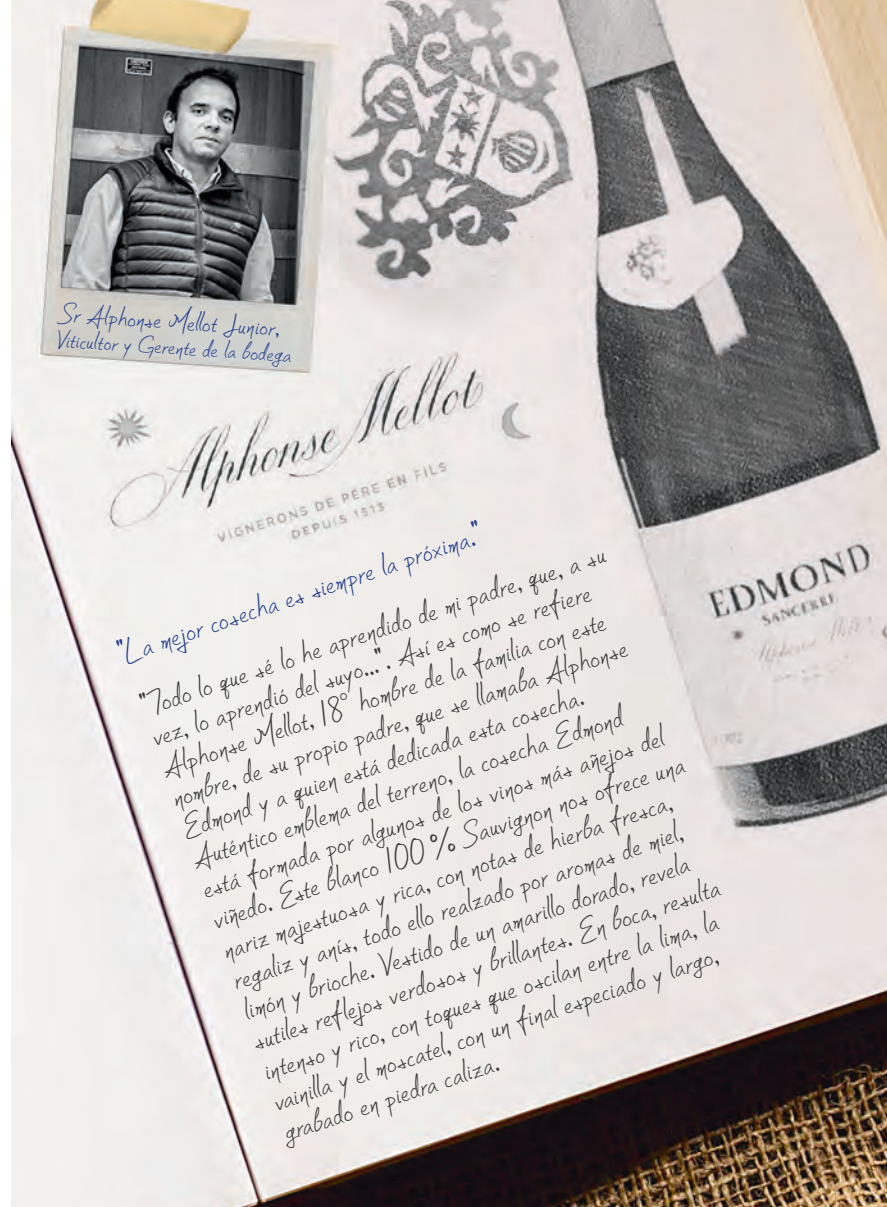 Sr Alphonse Mellot Junior,
Viticultor y Gerente de la bodega
Alphonse Mellot
VIGNERONS DE PÈRE EN FILS
DEPUIS 1513
"La mejor cosecha es siempre la próxima."
"Todo lo que sé lo he aprendido de mi padre, que, a su
vez, lo aprendió del suyo...". Así es como se refiere
Alphonse Mellot, 18º hombre de la familia con este
nombre, de su propio padre, que se llamaba Alphonse
Edmond y a quien está dedicada esta cosecha.
Auténtico emblema del terreno, la cosecha Edmond
está formada por algunos de los vinos más añejos del
viñedo. Este blanco 100% Sauvignon nos ofrece una
nariz majestuosa y rica, con notas de hierba fresca,
regaliz y anís, todo ello realzado por aromas de miel,
limón y brioche. Vestido de un amarillo dorado, revela
sutiles reflejos verdosos y brillantes. En boca, resulta
intenso y rico, con toques que oscilan entre la lima, la
vainilla y el moscatel, con un final especiado y largo,
grabado en piedra caliza.
EDMOND
SANCERRE
Alphonse Mellot